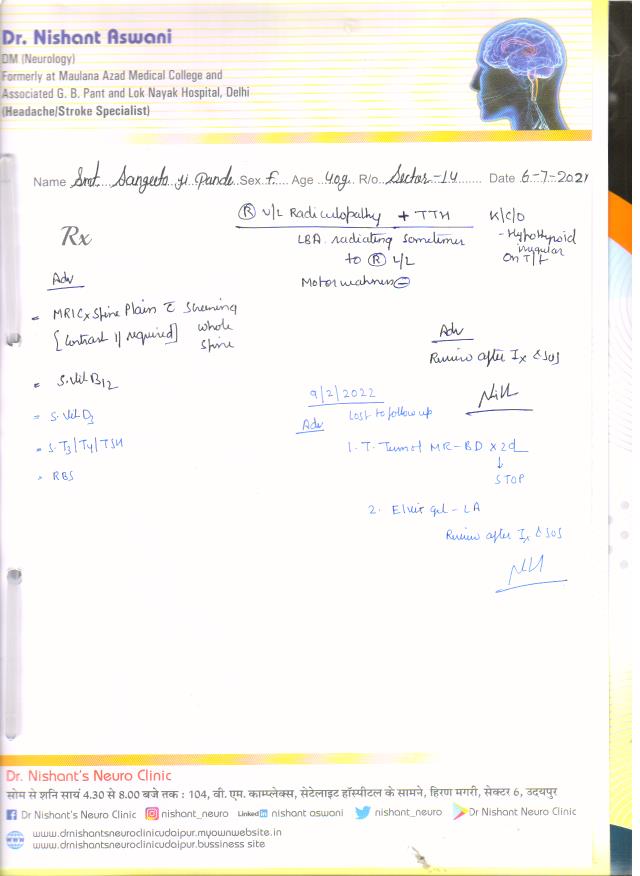 Dr. Nishant Aswani
DM (Neurology)
Formerly at Maulana Azad Medical College and
Associated G. B. Pant and Lok Nayak Hospital, Delhi
(Headache/Stroke Specialist)
Name Smt. Sangeeta ji Pande Sex F. Age 40y R/o Sector-14 Date 6-7-2021
Rx
Ⓡ U/L Radiculopathy + TTH
LBA radiating sometimes
to Ⓡ L/L
Motor weakness ⊖
K/C/O
- Hypothyroid
irregular
On T/t
Adv
= MRI Cx Spine Plain c̄ Screening
[Contrast if required] whole
spine
= S. Vit B12
= S. Vit D3
= S. T3/T4/TSH
= RBS
Adv
Review after Ix & SOS
9/2/2022
Lost to follow up
Adv
1. T. MR-BD x 2d
↓
STOP
2. gel - LA
Review after Ix & SOS
Dr. Nishant's Neuro Clinic
सोम से शनि सायं 4.30 से 8.00 बजे तक : 104, वी. एम. काम्प्लेक्स, सेटेलाइट हॉस्पीटल के सामने, हिरण मगरी, सेक्टर 6, उदयपुर
Dr Nishant's Neuro Clinic nishant_neuro Linked in nishant aswani nishant_neuro Dr Nishant Neuro Clinic
www.drnishantsneuroclinicudaipur.myownwebsite.in
www.drnishantsneuroclinicudaipur.bussiness site